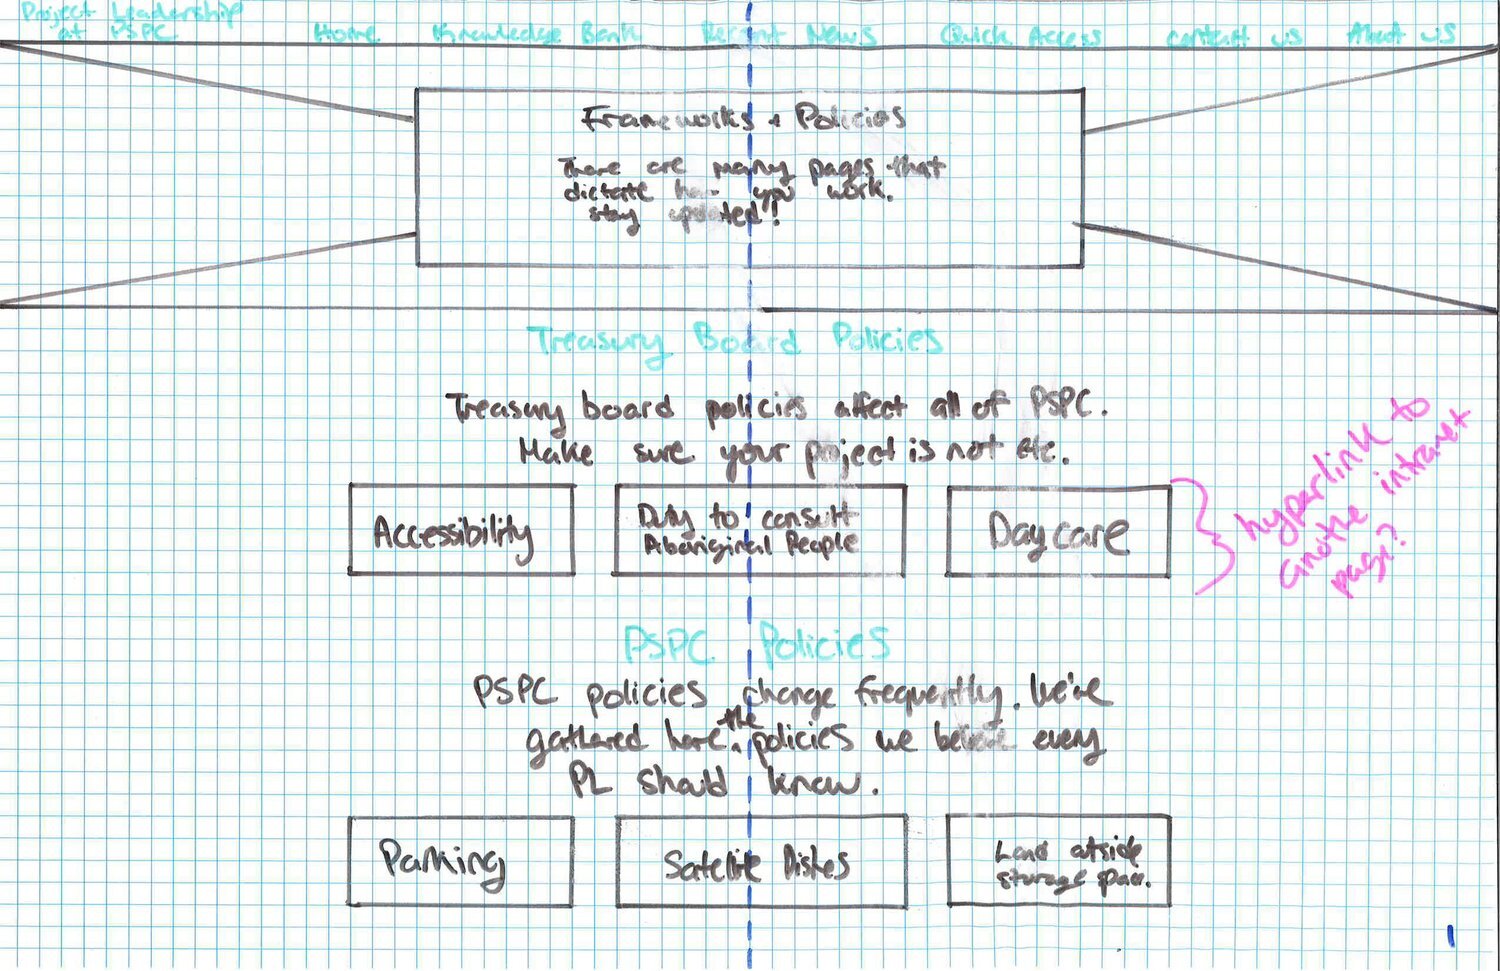 Project Leadership
at PSPC
Home Knowledge Bank Recent News Quick Access Contact us About us
Frameworks + Policies
There are many pages that
dictate how you work.
stay updated!
Treasury Board Policies
Treasury board policies affect all of PSPC.
Make sure your project is not etc.
Accessibility
Duty to consult
Aboriginal People
Day care
hyperlink to
another intranet
page?
PSPC Policies
PSPC policies change frequently. We've
gathered here the policies we believe every
PL should know.
Parking
Satellite Dishes
Land outside
storage space.
1